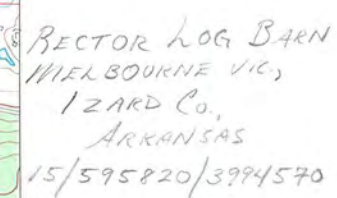 RECTOR LOG BARN
MELBOURNE VIC.,
IZARD CO.,
ARKANSAS
15/595820/3994570